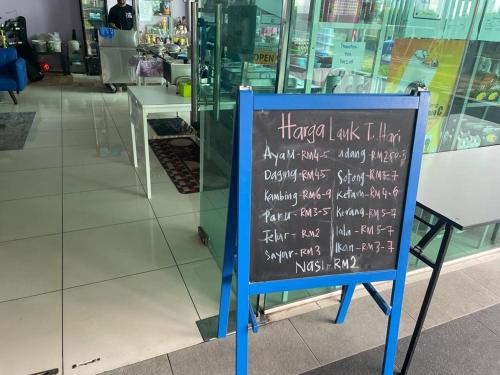 OPEN
Harga Lauk T. Hari
Ayam - RM4-5
Daging - RM45
Kambing - RM6-9
Paru - RM3-5
Telur - RM2
Sayur - RM3
udang - RM2.50-3
Sotong - RM5-7
Ketam - RM4-6
Kerang - RM5-7
lala - RM5-7
Ikan - RM3-7
Nasi - RM2